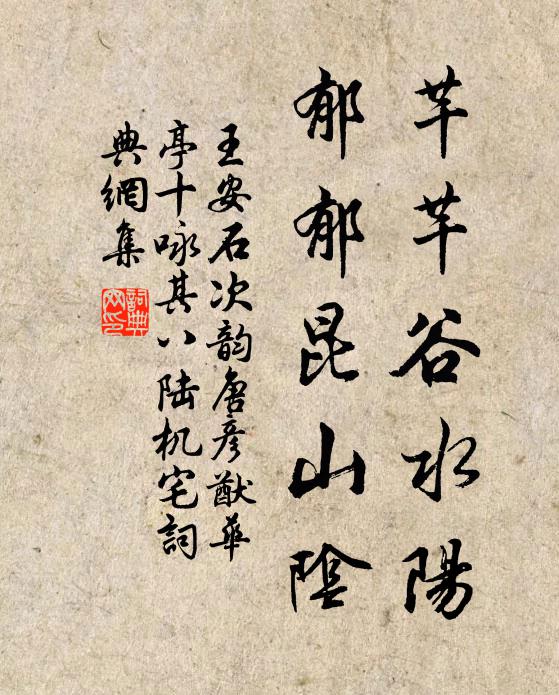 芊芊谷水陽
郁郁昆山陰
王安石次韵唐彦猷華
亭十咏其八陆机宅詞
典網集
詞典
网印